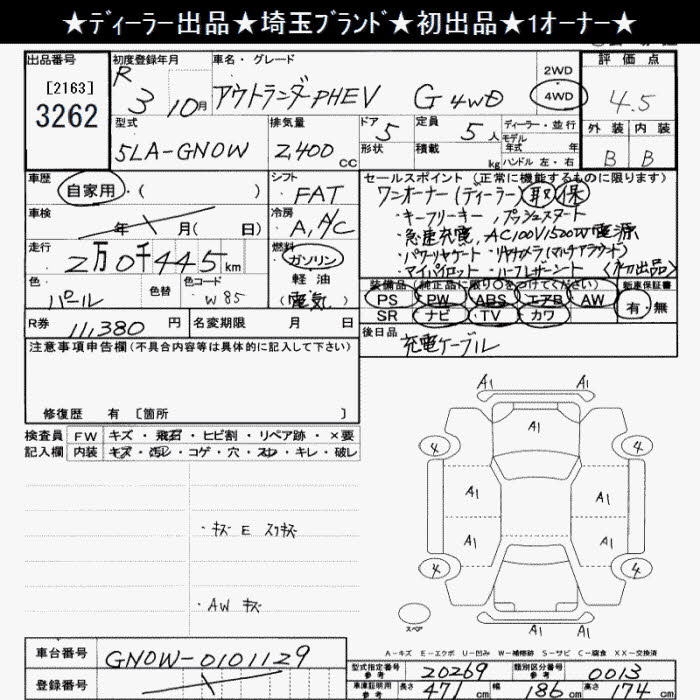 ★ディーラー出品★埼玉ブランド★初出品★1オーナー★
出品番号
[2163]
3262
初度登録年月
R 3 10月
車名・グレード
アウトランダーPHEV G 4WD
2WD
4WD
評価点
4.5
外装 内装
B B
型式
5LA-GN0W
排気量
2,400 cc
ドア 5
形状
定員 5人
積載 kg
ディーラー・並行
モデル年式 年
ハンドル 左・右
車歴
自家用・( )
シフト
FAT
車検
年 月( 日)
冷房
A,A/C
走行
2万0千445km
燃料
ガソリン
軽油
(電気)
色
パール
色替
色コード
W85
R券
11,380円
名変期限 月 日
セールスポイント(正常に機能するものに限ります)
ワンオーナー(ディーラー)取 保
・キーフリーキー,プッシュスタート
・急速充電,AC100V1500W電源
・パワーバックゲート・リヤカメラ(マルチアラウンド)
・マイパイロット・ハーフレザーシート <初出品>
装備品(純正品に限り○をつけてください)
PS PW ABS エアB AW
SR ナビ TV カワ
新車保証書
有・無
後日品
充電ケーブル
注意事項申告欄(不具合内容等は具体的に記入して下さい)
修復歴 有 〔箇所 〕
検査員
記入欄
FW キズ・飛石・ヒビ割・リペア跡・×要
内装 キズ・汚レ・コゲ・穴・スレ・キレ・破レ
・キズ E スリキズ
・AW キズ
A1 A1
A1
4 4
A1 A1
A1 A1
4 4
A1 A1
スペア
A-キズ E-エクボ U-凹み W-補修跡 S-サビ C-腐食 XX-交換済
車台番号
GN0W-0101129
登録番号
型式指定番号
参考
20269
類別区分番号
参考
0013
車庫証明用
参考
長さ 471cm
幅 186cm
高さ 174cm